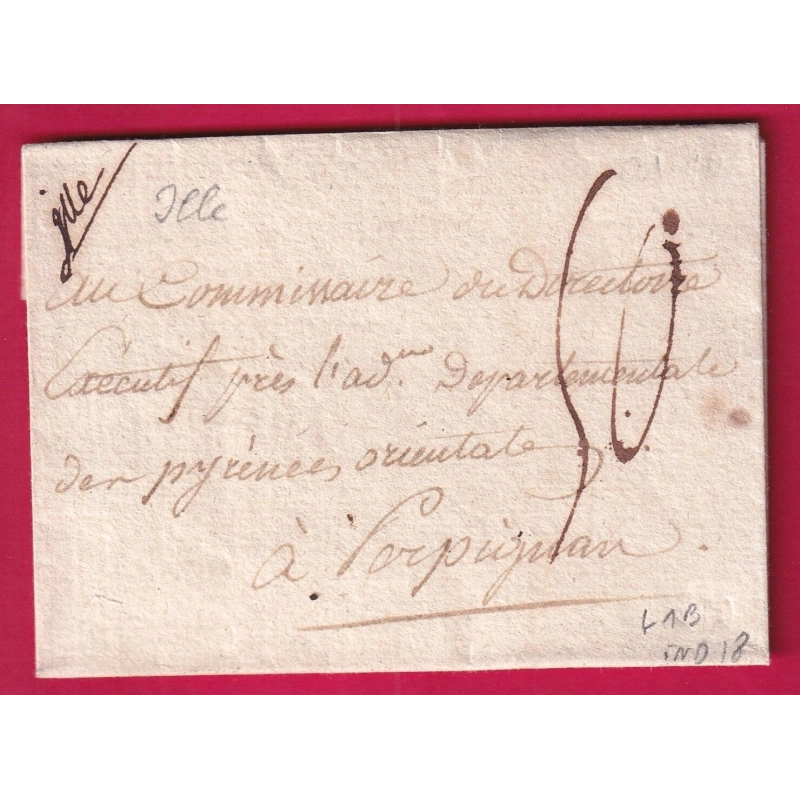 ille
Ille
au Commissaire du Directoire
Exécutif près l'ad.on Departementale
des pyrénées orientales
à Perpignan.
L1B
IND 18